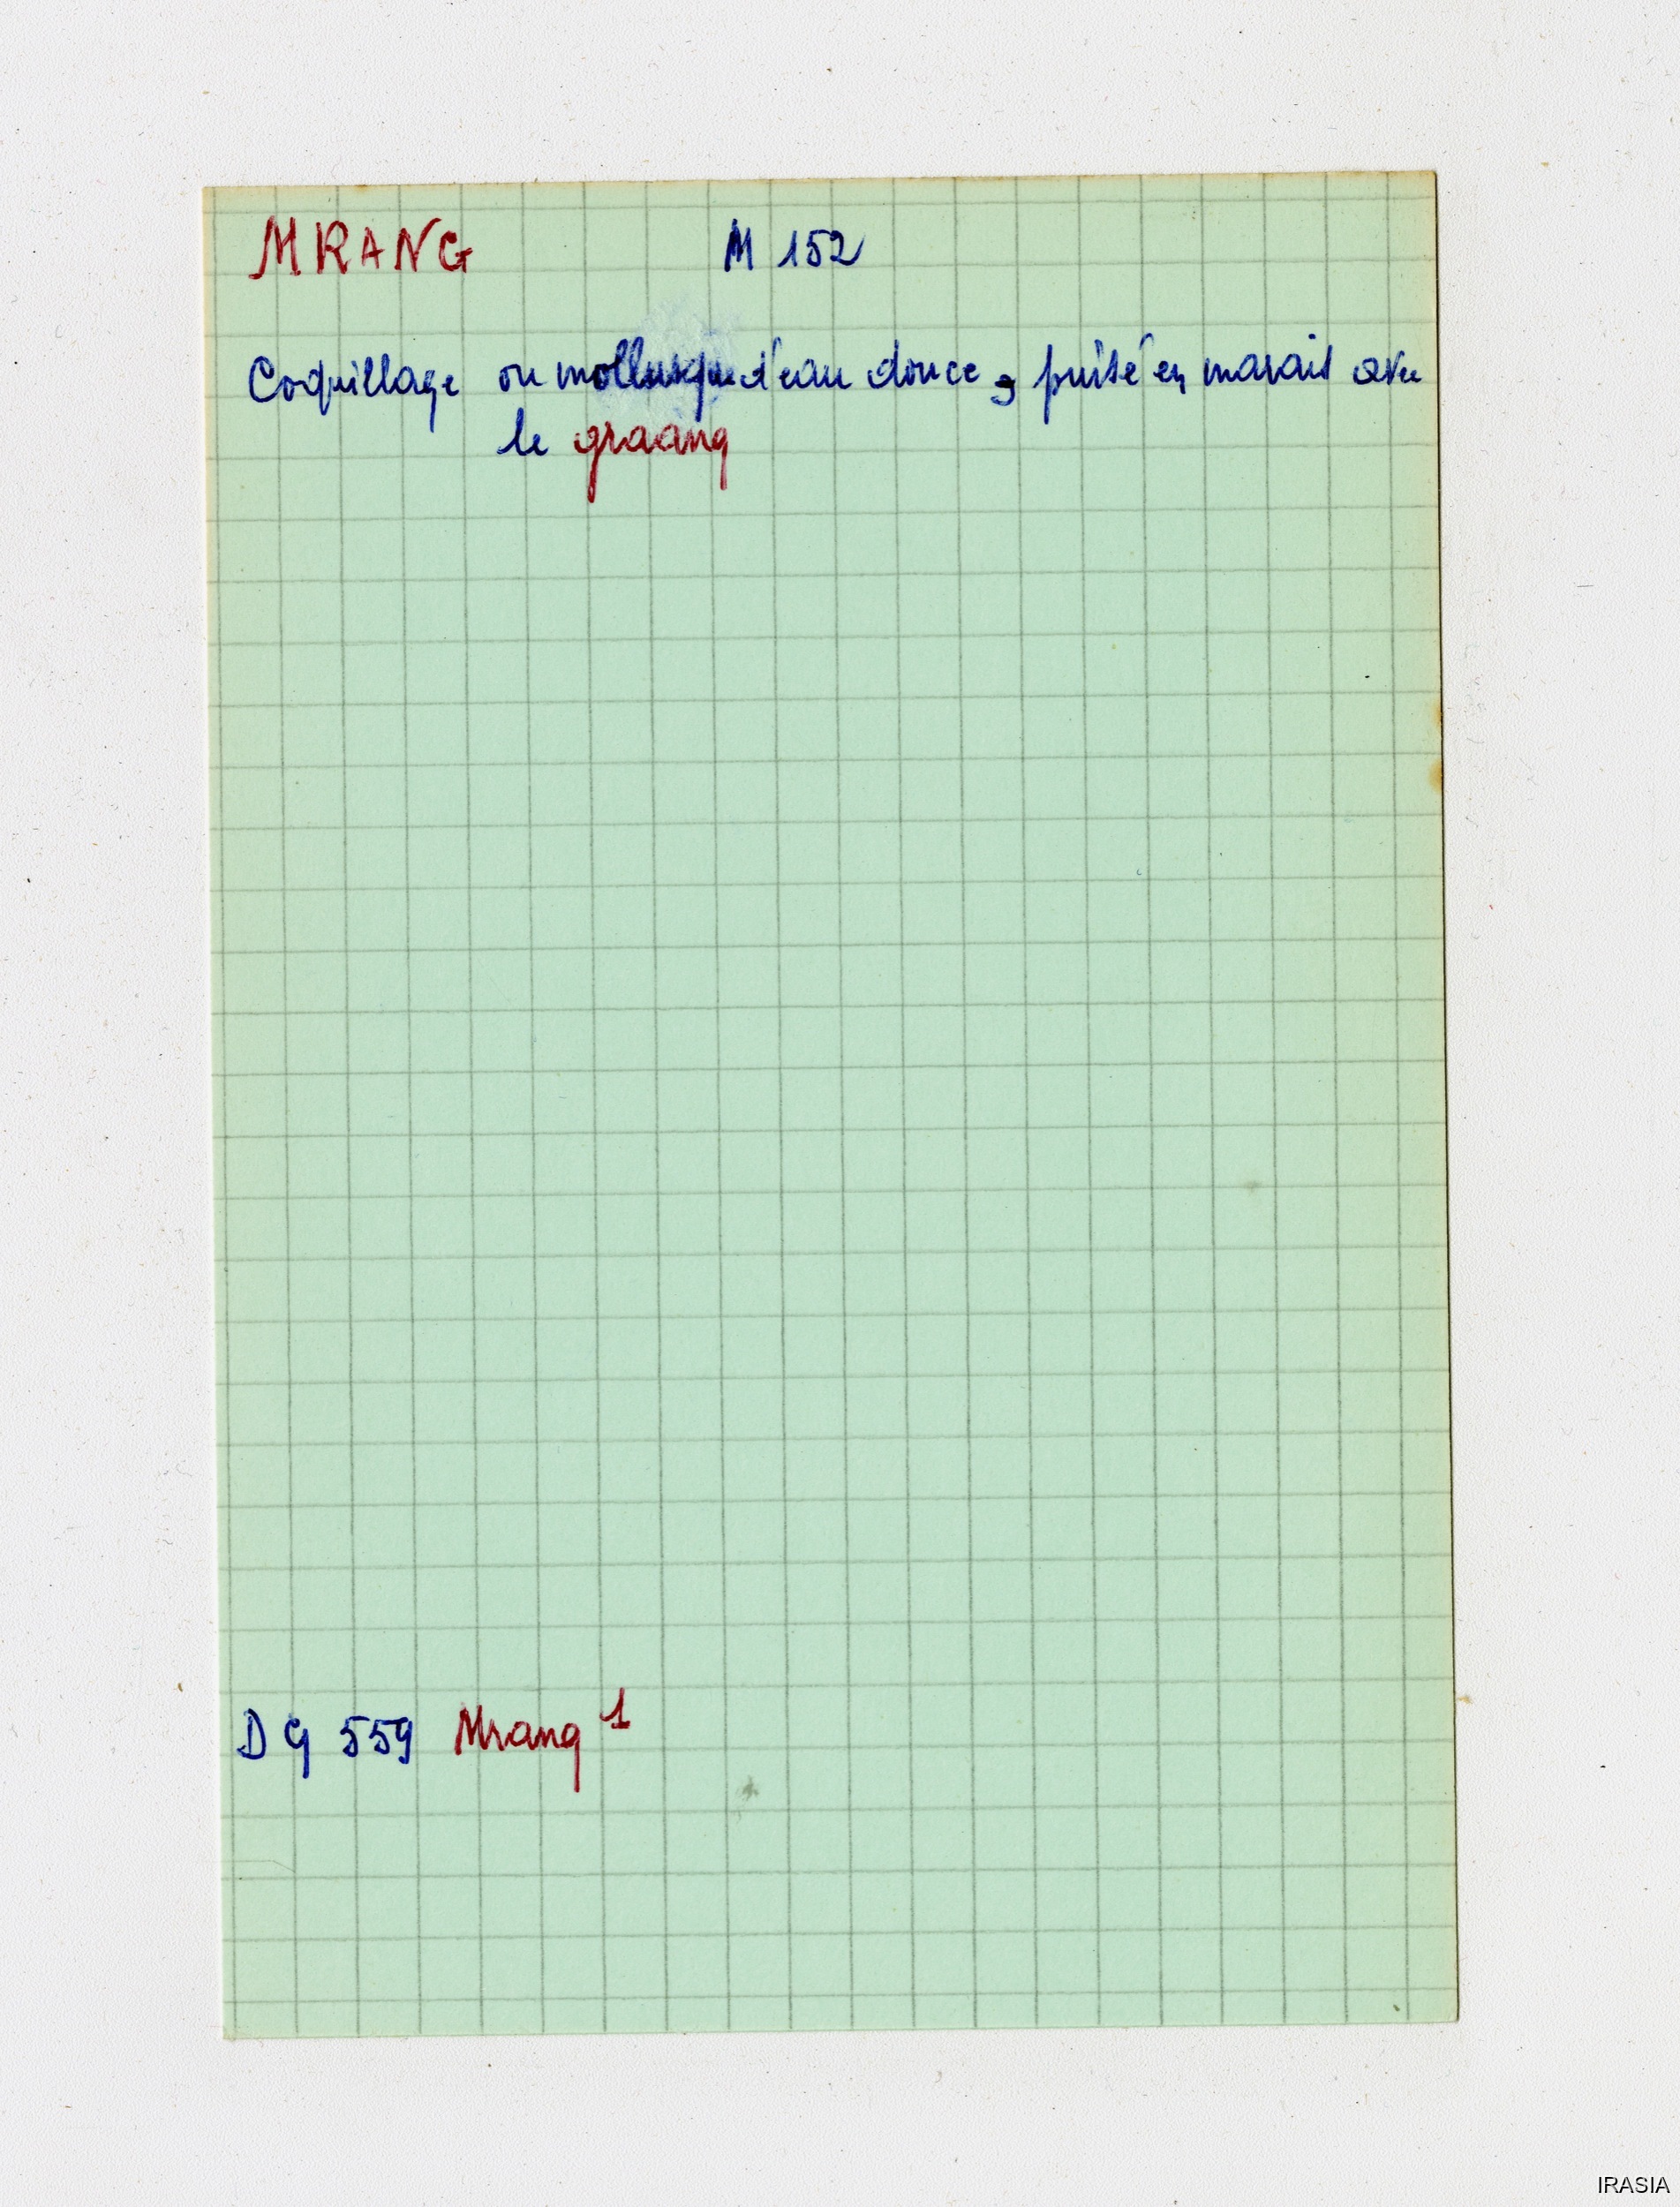 MRANG M 152
Coquillage ou mollusque d'eau douce, puisé en marais avec
le graang
DG 559 Mrang 1
IRASIA